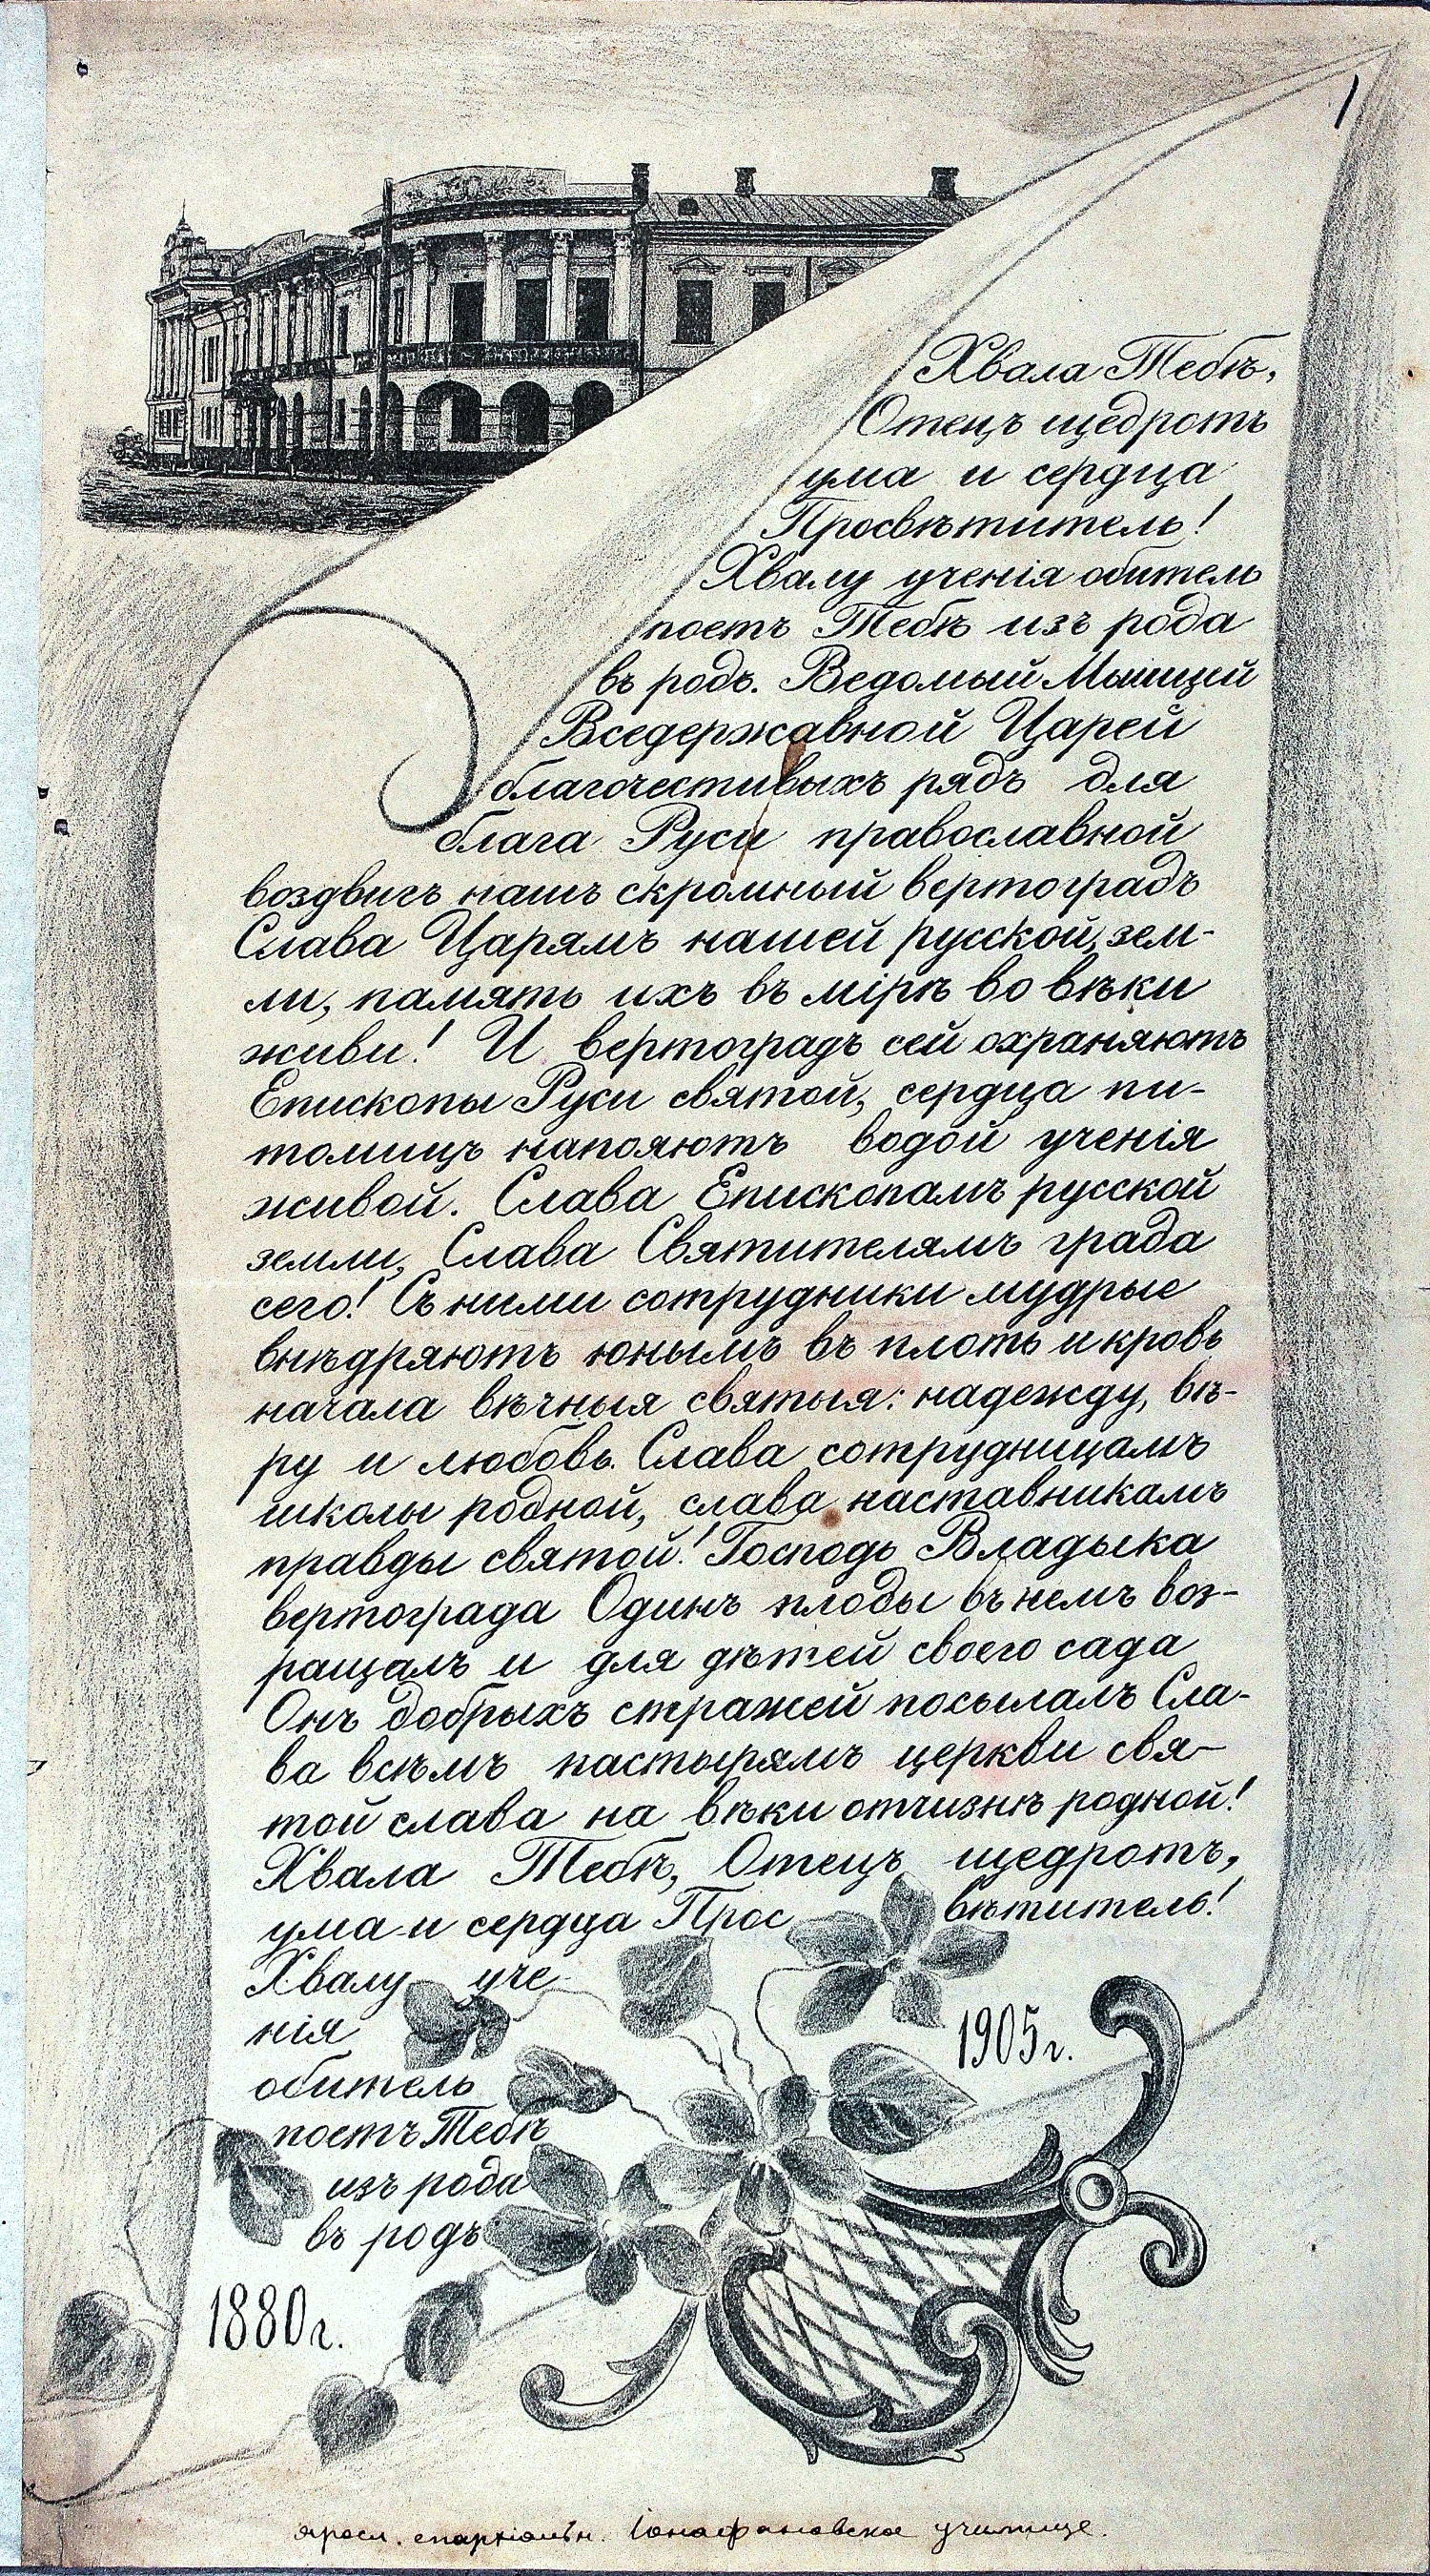 1
Хвала Тебѣ,
Отецъ щедротъ
ума и сердца
Просвѣтитель!
Хвалу ученія обитель
поетъ Тебѣ изъ рода
въ родъ. Ведомый Мышцей
Вседержавной Царей
благочестивыхъ рядъ для
блага Руси православной
воздвигъ нашъ скромный вертоградъ
Слава Царямъ нашей русской зем-
ли, память ихъ въ мірѣ во вѣки
живи! И вертоградъ сей охраняютъ
Епископы Руси святой, сердца пи-
томицъ напояютъ водой ученія
живой. Слава Епископамъ русской
земли, Слава Святителямъ града
сего! Съ ними сотрудники мудрые
внѣдряютъ юнымъ въ плоть и кровь
начала вѣчныя святыя: надежду, вѣ-
ру и любовь. Слава сотрудницамъ
школы родной, слава наставникамъ
правды святой! Господь Владыка
вертограда Одинъ плоды въ немъ воз-
ращалъ и для дѣтей своего сада
Онъ добрыхъ стражей посылалъ Сла-
ва всѣмъ пастырямъ церкви свя-
той слава на вѣки отчизнѣ родной!
Хвала Тебѣ, Отецъ щедротъ,
ума и сердца Прос вѣтитель!
Хвалу уче-
нія
обитель
поетъ Тебѣ
изъ рода
въ родъ
1905г.
1880г.
яросл. епархіальн. Іонафановское училище.